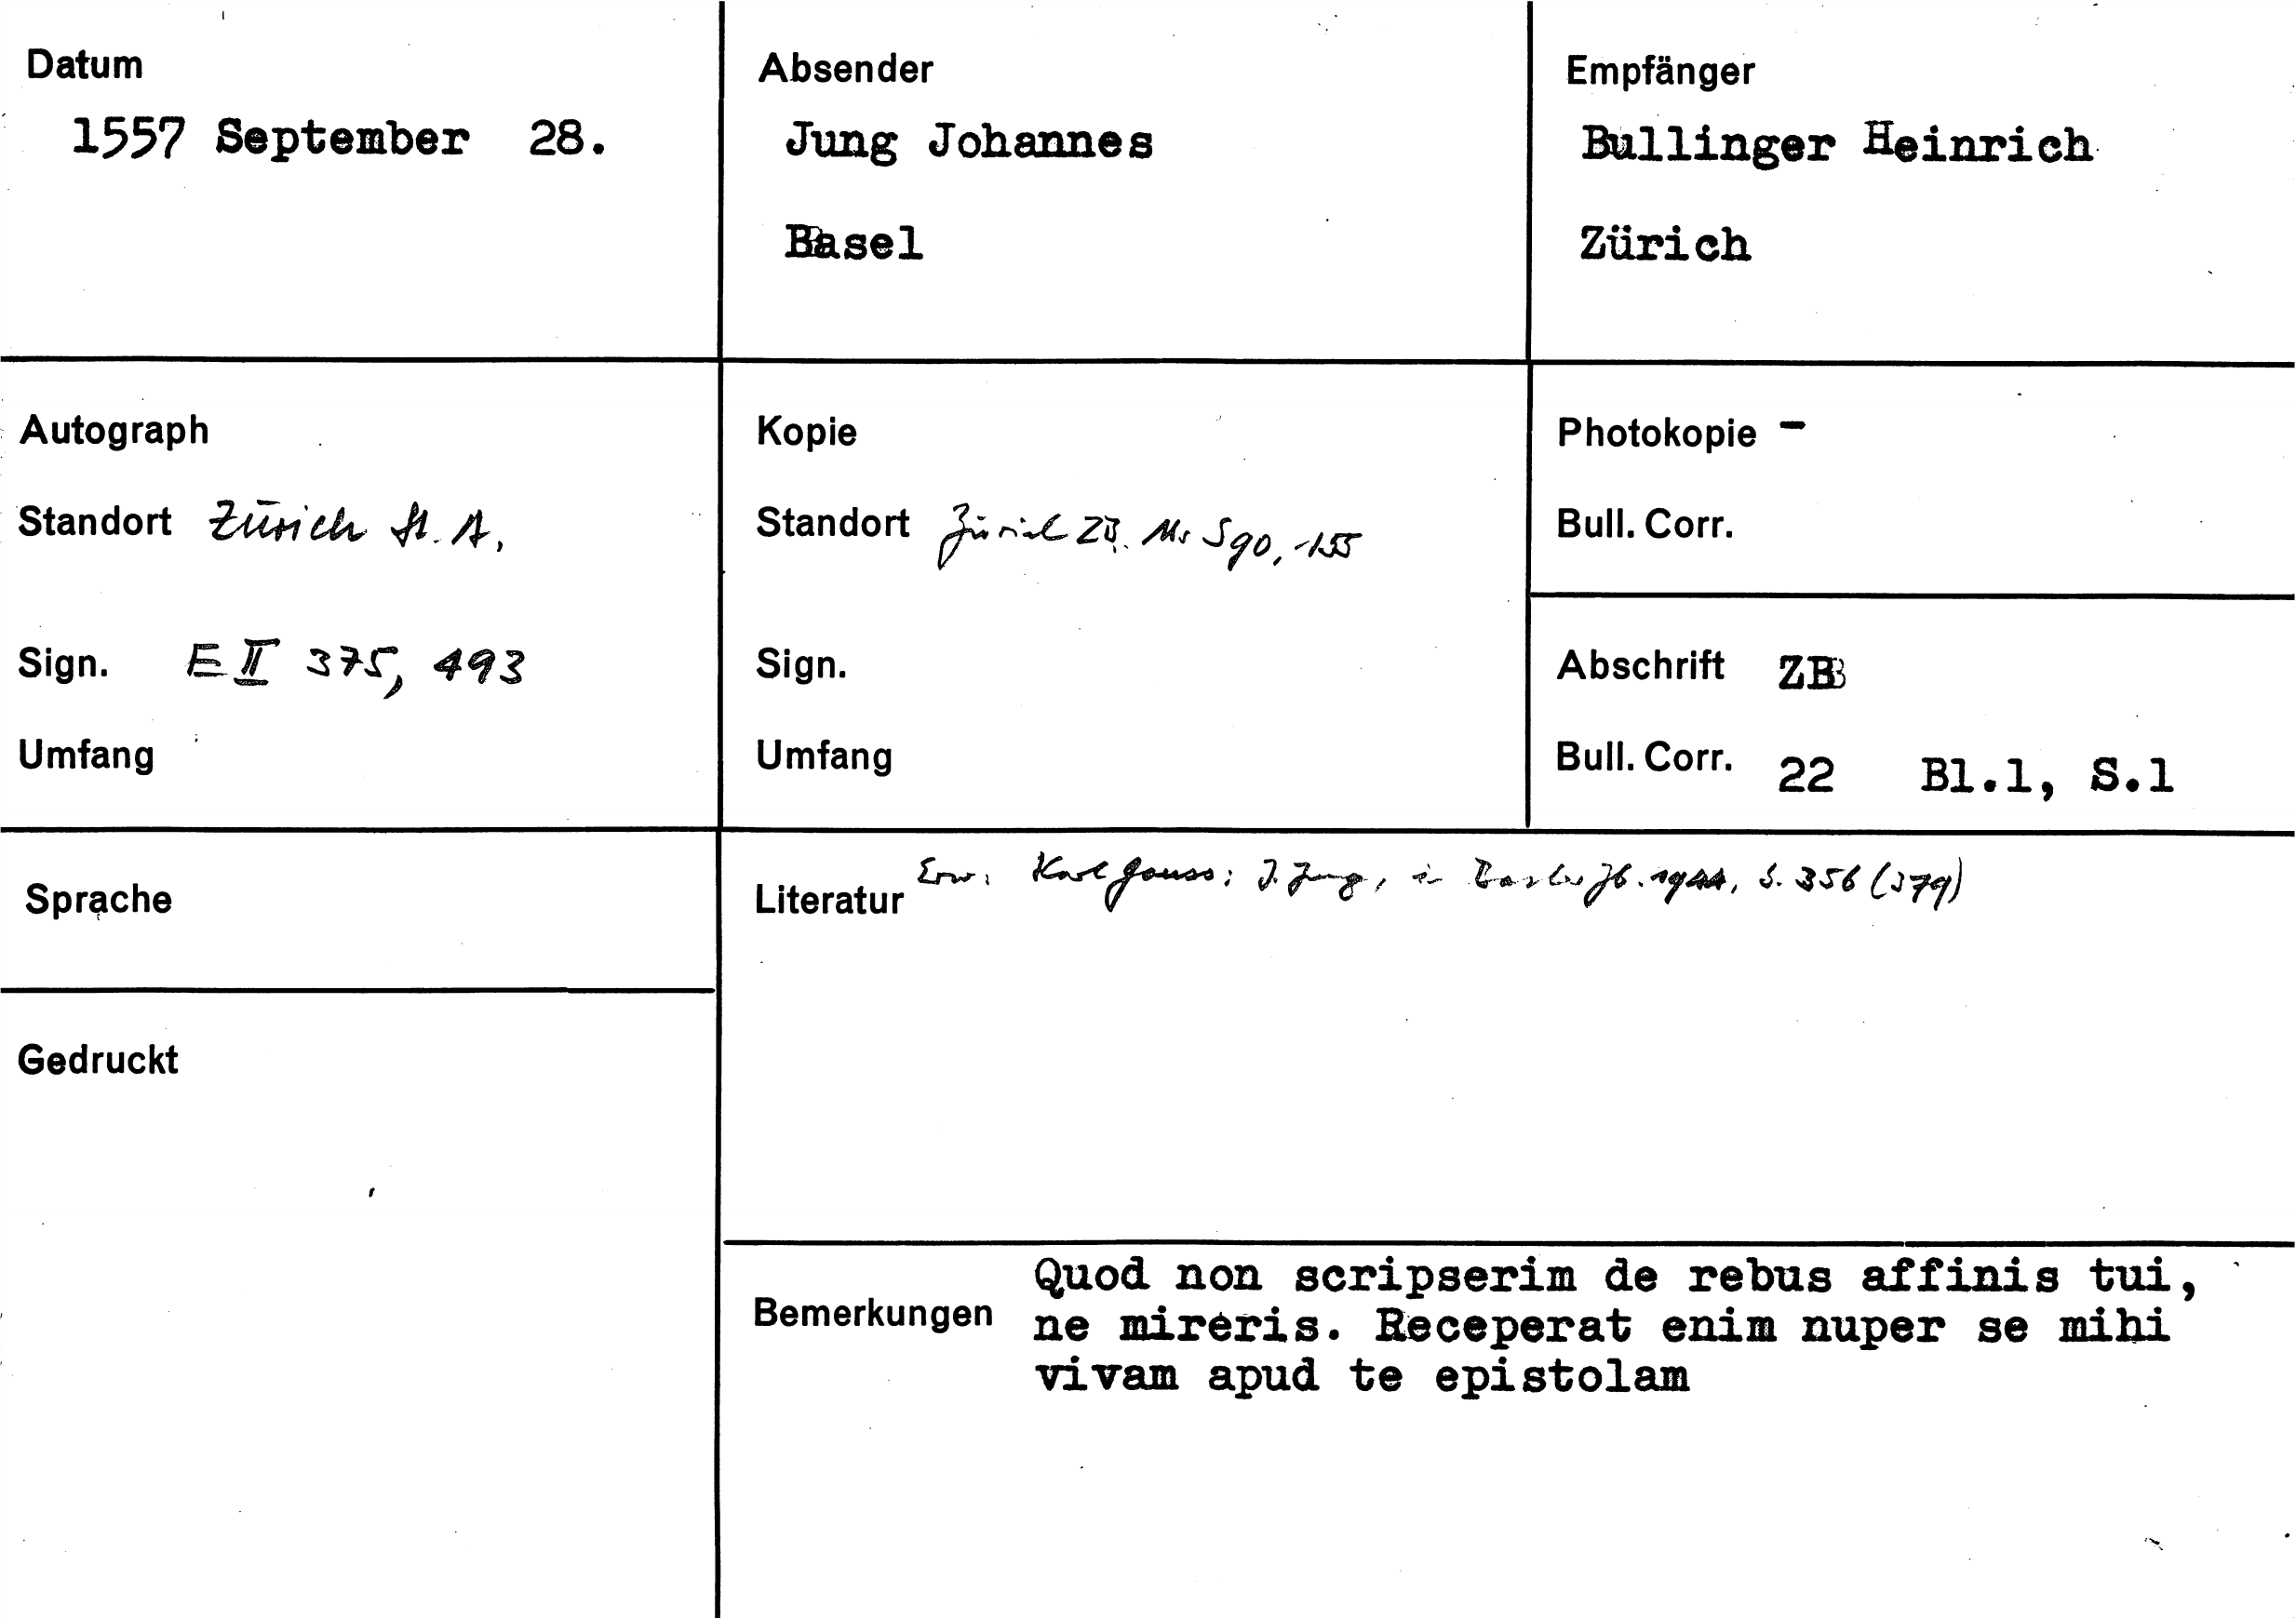 Datum
1557 September 28.
Absender
Jung Johannes
Basel
Empfänger
Bullinger Heinrich
Zürich
Autograph
Standort Zürich St. A.
Sign. E II 375, 493
Umfang
Kopie
Standort Zürich ZB. Ms S 90, 155
Sign.
Umfang
Photokopie -
Bull. Corr.
Abschrift ZB
Bull. Corr. 22 Bl.1, S.1
Sprache
Gedruckt
Literatur Erw. Karl Gauss: J. Jung, in Basler Jb. 1944, S. 356 (379)
Bemerkungen
Quod non scripserim de rebus affinis tui,
ne mireris. Receperat enim nuper se mihi
vivam apud te epistolam